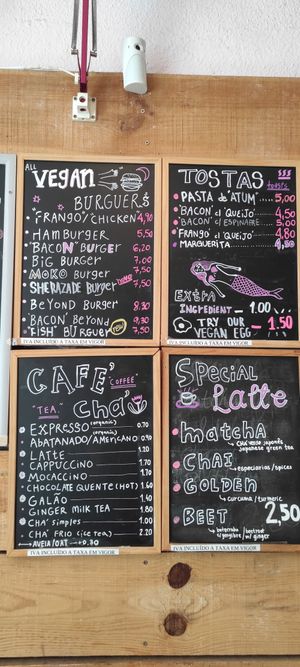 ALL
VEGAN
BURGUERS
"FRANGO"/CHICKEN" 4,90
HAMBURGER 5,50
"BACON" BURGER 6,20
BIG BURGER 7,00
MOKO BURGER 7,50
SHERAZADE BURGER 7,50
BEYOND BURGER 8,30
"BACON" BEYOND 9,30
FISH" BURGUER 7,50
IVA INCLUÍDO A TAXA EM VIGOR
TOSTAS
toasts
PASTA de "ATUM" 5,00
"BACON" c/ "QUEIJO" 4,50
"BACON" c/ ESPINAFRE 5,00
FRANGO c/ "QUEIJO" 4,80
MARGUERITA 4,50
EXTRA
INGREDIENT - 1.00
TRY OUR
VEGAN EGG - 1.50
IVA INCLUÍDO A TAXA EM VIGOR
CAFE' "COFFEE"
"TEA" Chá
EXPRESSO (organic) 0.70
ABATANADO/AMERICANO 0.90
LATTE 1.20
CAPPUCCINO 1.70
MOCACCINO 1.70
CHOCOLATE QUENTE (HOT) 1.60
GALÃO 1.40
GINGER MILK TEA 1.80
CHA' simples 1.00
CHA' FRIO (ice tea) 2.20
→ AVEIA/OAT → +0.30
IVA INCLUÍDO A TAXA EM VIGOR
Special
Latte
matcha
chá verde japonês
japanese green tea
CHAI
especiarias/spices
GOLDEN
curcuma / turmeric
BEET 2,50
beterraba / beetroot
c/gengibre / w/ ginger
IVA INCLUÍDO A TAXA EM VIGOR